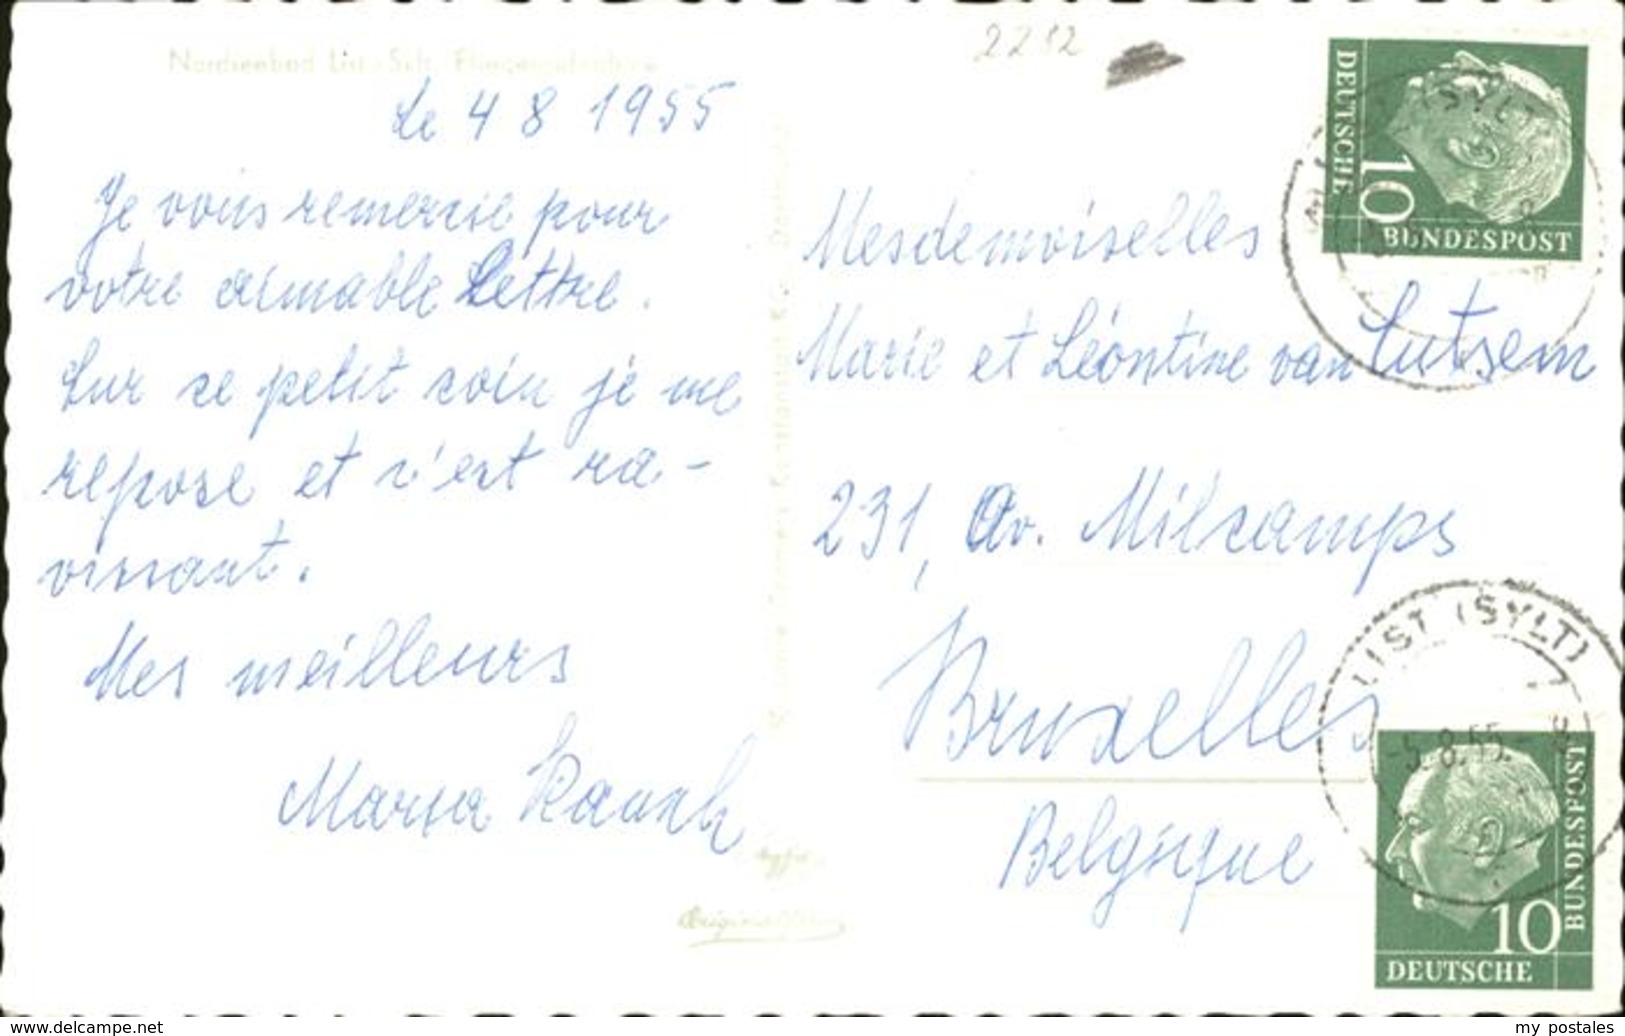 Nordseebad List - Sylt.
Le 4 8 1955
Je vous remercie pour
votre aimable Lettre.
Sur ce petit coin je me
repose et c'est ra-
vissant.
Mes meilleurs
Maria
2212
Mesdemoiselles
Marie et Léontine van Cutsem
231, Av. Milcamps
Bruxelles
Belgique
DEUTSCHE
10
BUNDESPOST
(SYLT)
LIST (SYLT)
-5.8.55.-8
BUNDESPOST
10
DEUTSCHE
www.delcampe.net
my postales